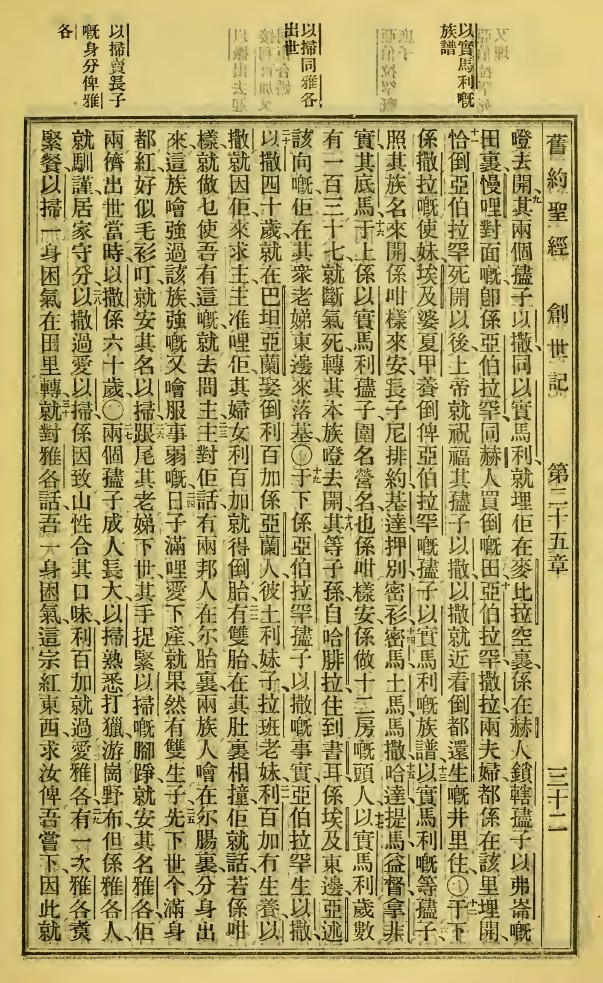 以實馬利嘅
族譜
以掃同雅各
出世
以掃賣長子
嘅身分俾雅
各
舊約聖經 創世記 第二十五章 三十二
噔去開其兩個孻子以撒同以實馬利就埋佢在麥比拉空裏係在赫人鎖轄孻子以弗崙嘅
田裏慢哩對面嘅卽係亞伯拉罕同赫人買倒嘅田亞伯拉罕撒拉兩夫婦都係在該里埋開
恰倒亞伯拉罕死開以後上帝就祝福其孻子以撒以撒就近看倒都還生嘅井里住〇于下
係撒拉嘅使妹埃及婆夏甲養倒俾亞伯拉罕嘅孻子以實馬利嘅族譜以實馬利嘅等孻子
照其族名來開係咁樣來安長子尼排約基達押別密衫密馬土馬馬撒哈達提馬益督拿非
實其底馬于上係以實馬利孻子圍名營名也係咁樣安係做十二房嘅頭人以實馬利歲數
有一百三十七就斷氣死轉其本族噔去開其等子孫自哈腓拉住到書耳係埃及東邊亞述
該向嘅佢在其衆老娣東邊來落基〇于下係亞伯拉罕孻子以撒嘅事實亞伯拉罕生以撒
以撒四十歲就在巴坦亞蘭娶倒利百加係亞蘭人彼土利妹子拉班老妹利百加冇生養以
撒就因佢來求主主准哩佢其婦女利百加就得倒胎有雙胎在其肚裏相撞佢就話若係咁
樣就做乜使吾有這嘅就去問主主對佢話有兩邦人在尔胎裏兩族人噲在尔腸裏分身出
來這族噲強過該族強嘅又噲服事弱嘅日子滿哩愛下產就果然有雙生子先下世今滿身
都紅好似毛衫叮就安其名以掃跟尾其老娣下世其手捉緊以掃嘅腳踭就安其名雅各佢
兩儕出世當時以撒係六十歲〇兩個孻子成人長大以掃熟悉打獵游崗野布但係雅各人
就馴謹居家守分以撒過愛以掃係因致山性合其口味利百加就過愛雅各有一次雅各煑
緊餐以掃一身困氣在田里轉就對雅各話吾一身困氣這宗紅東西求汝俾吾嘗下因此就